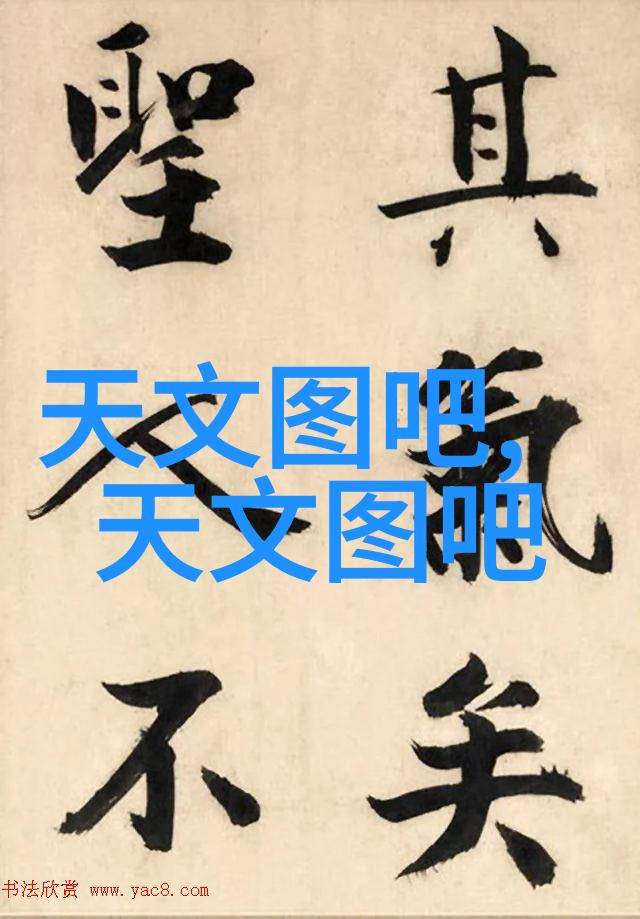 其氣矣
聖人不
天文图吧,
天文图吧
书法欣赏 www.yac8.com